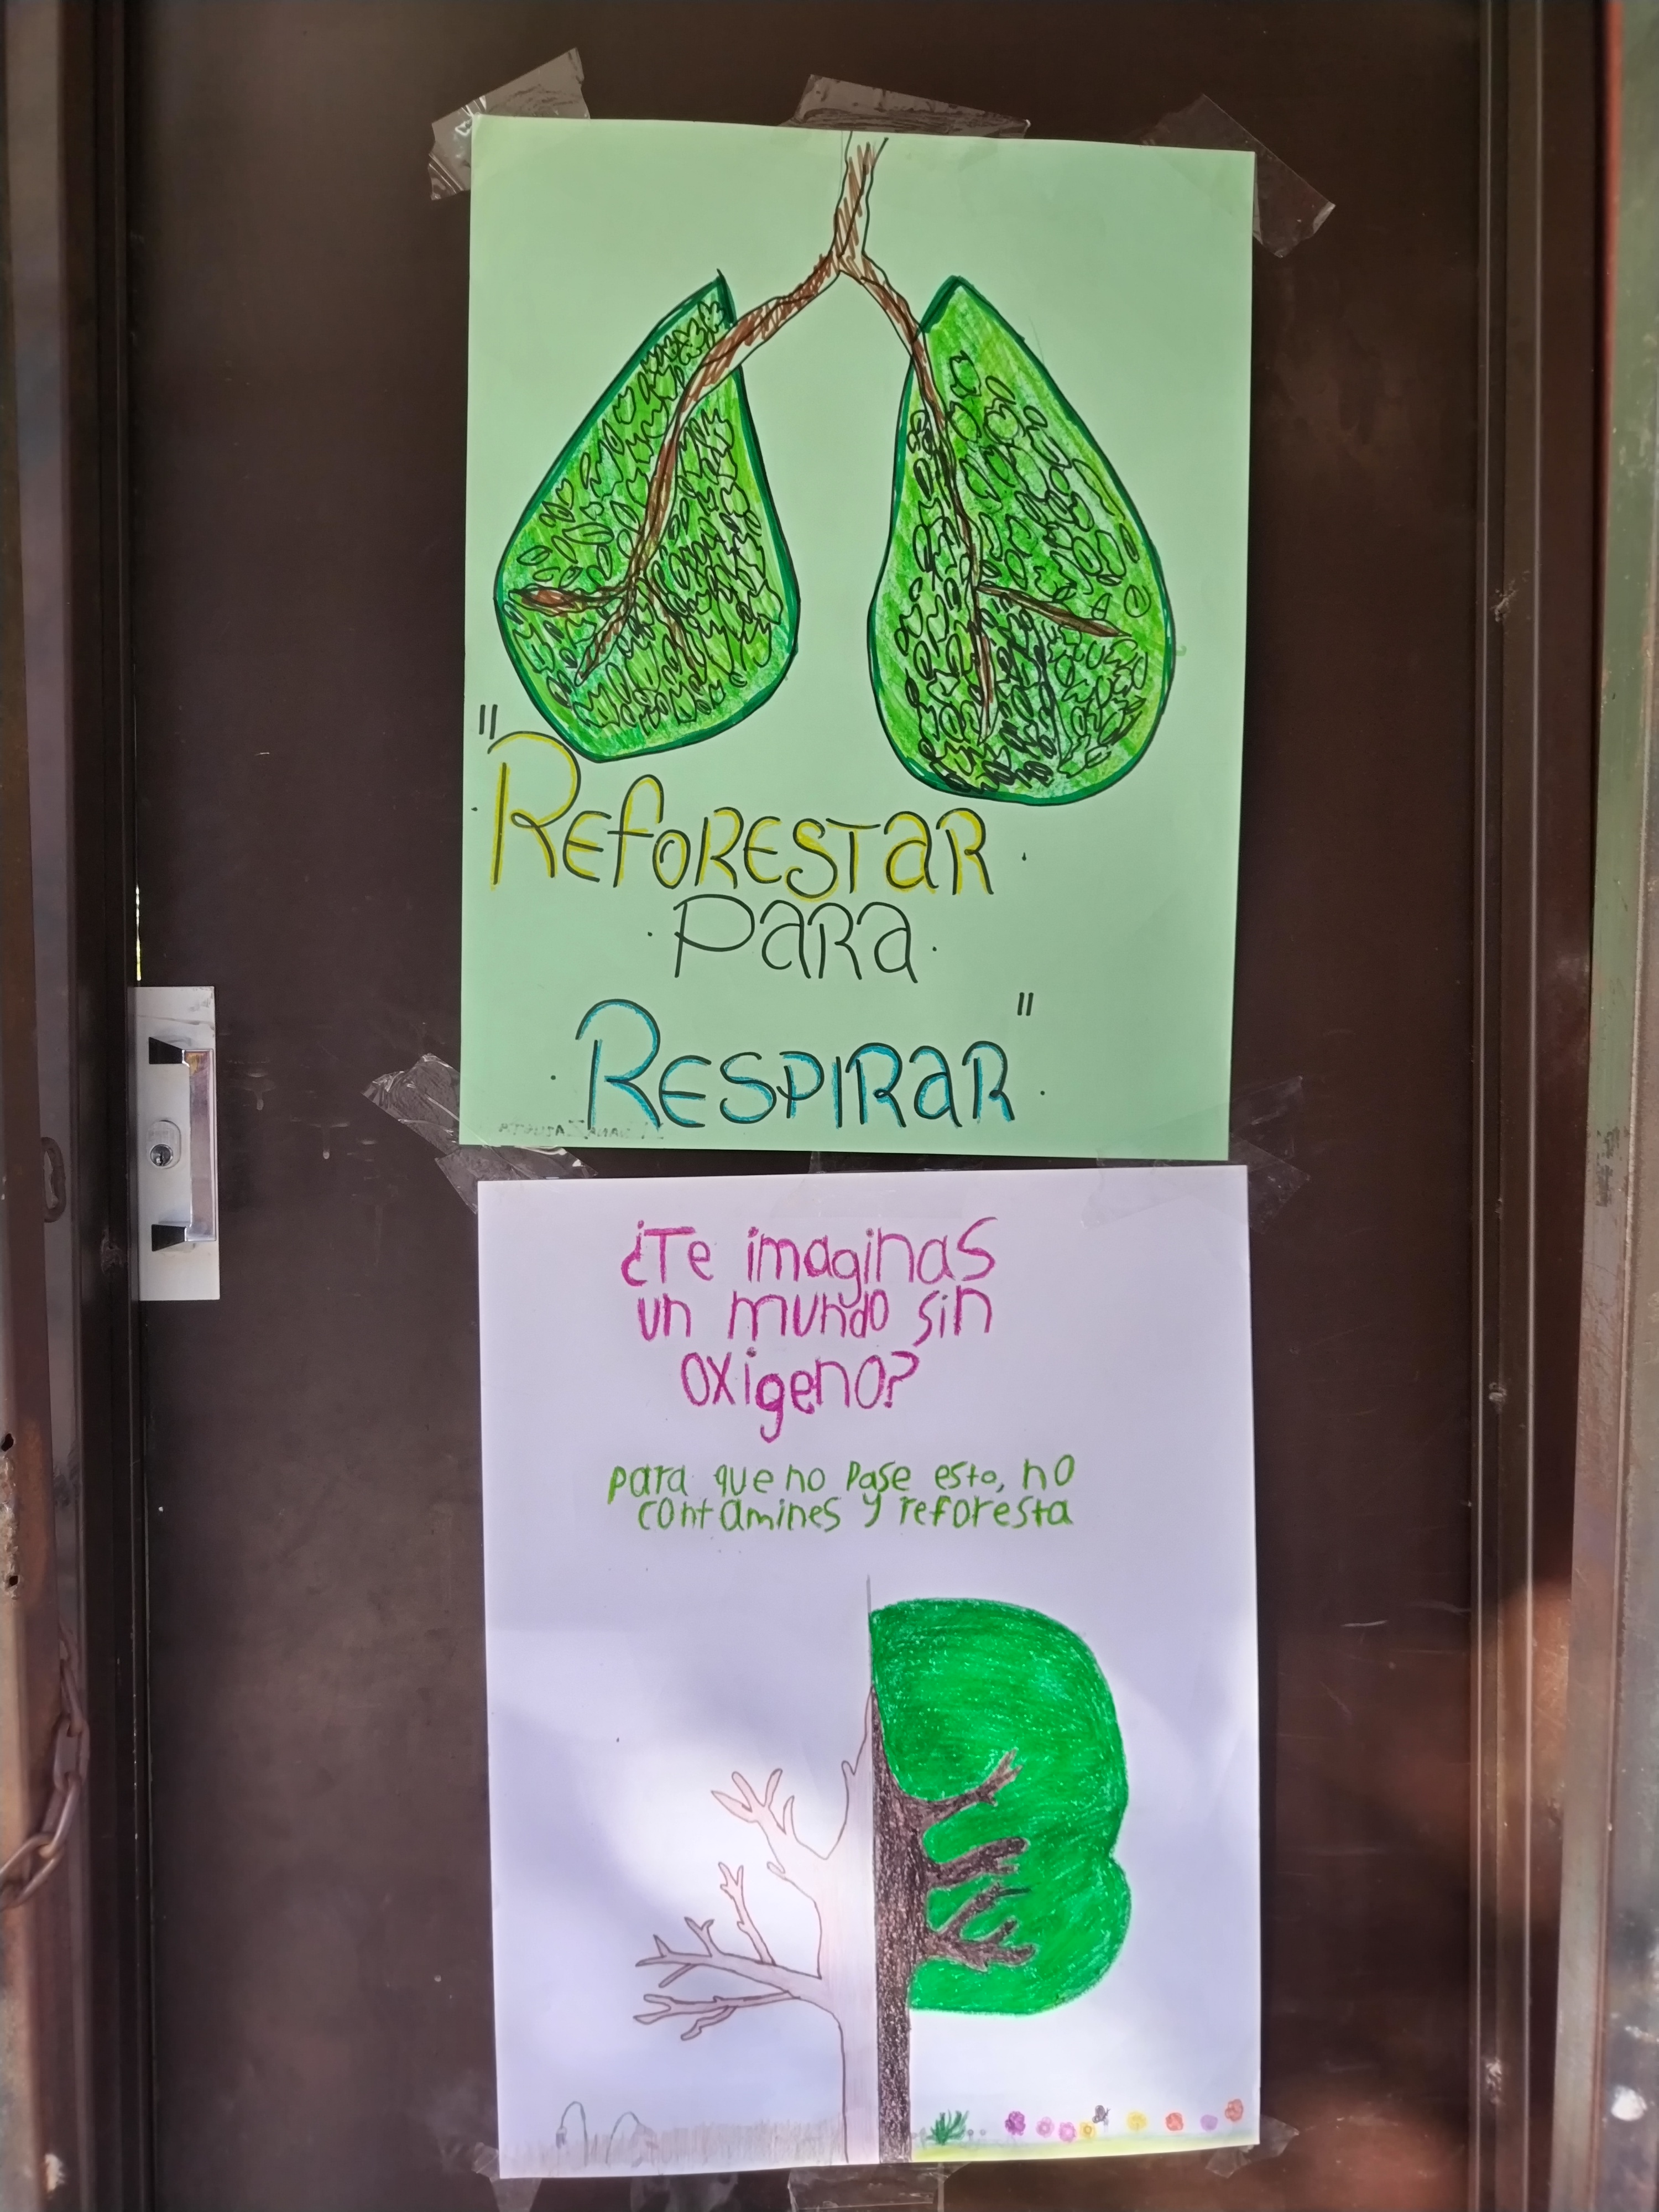 "Reforestar
Para
Respirar"
¿Te imaginas
un mundo sin
oxigeno?
para que no pase esto, no
contamines y reforesta